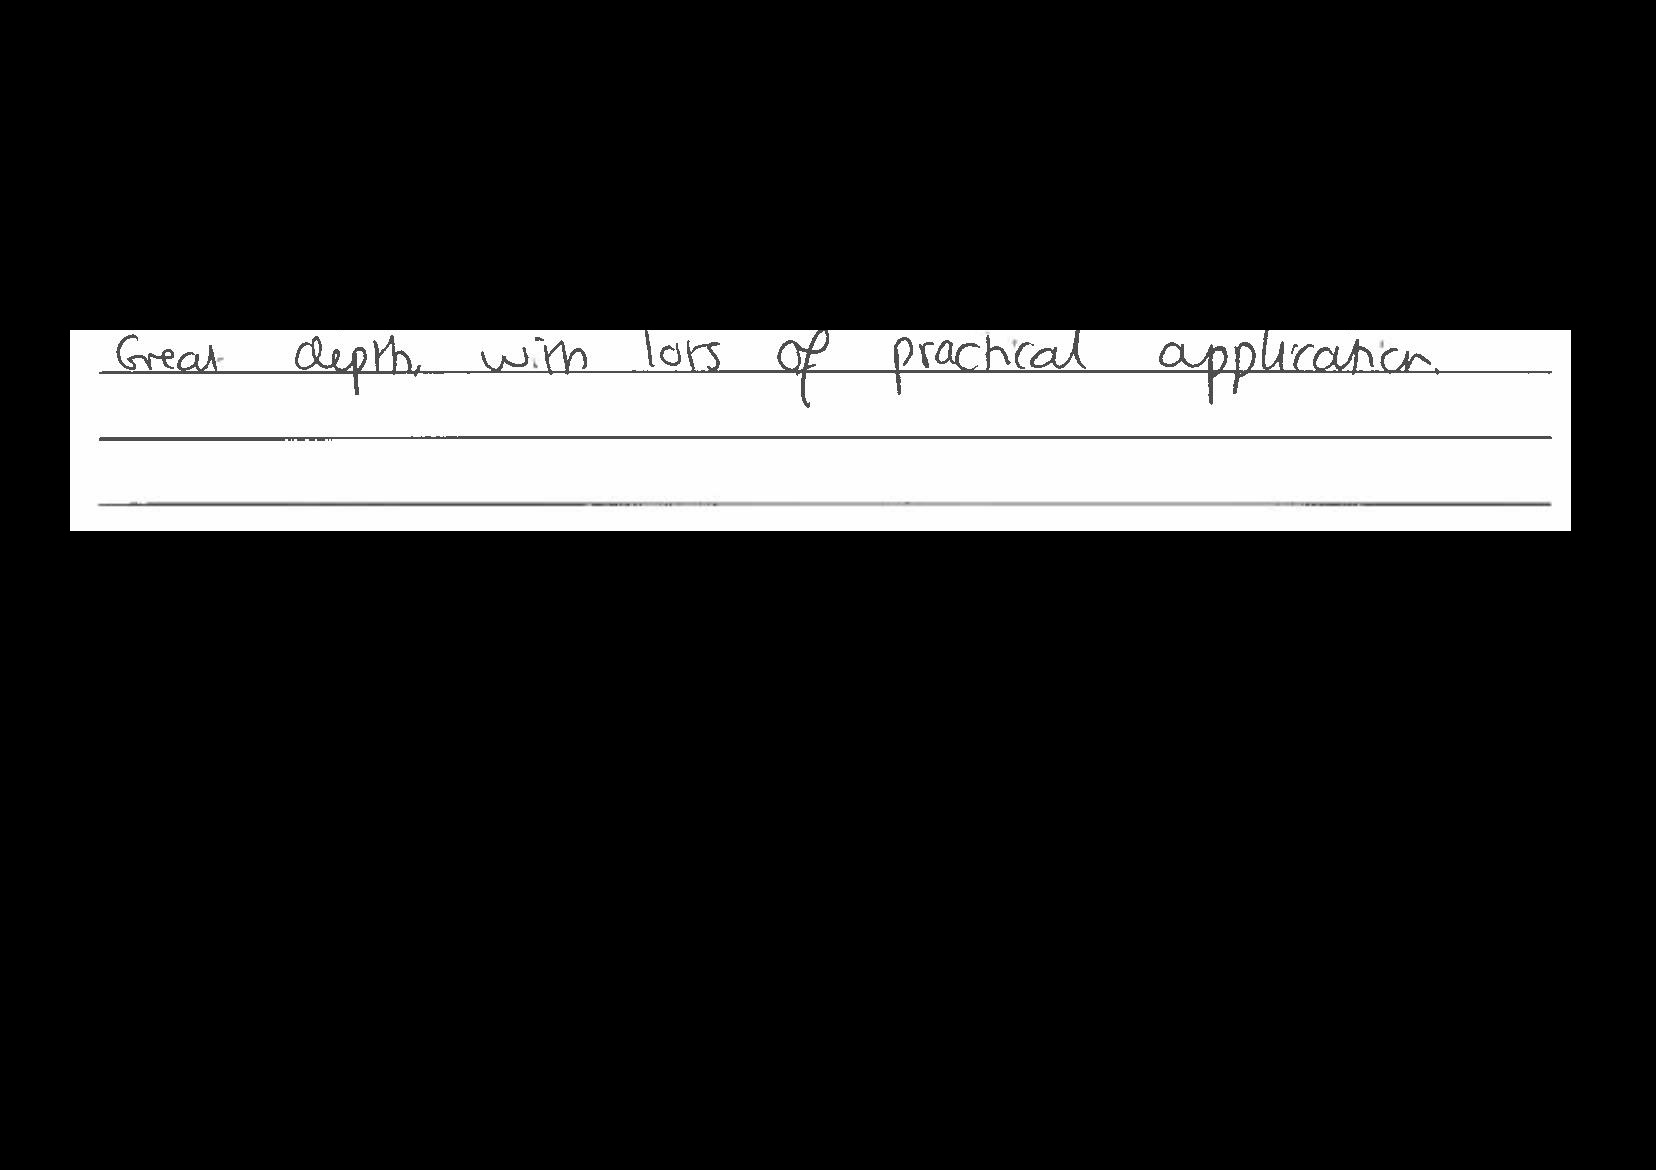 Great depth, with lots of practical application.